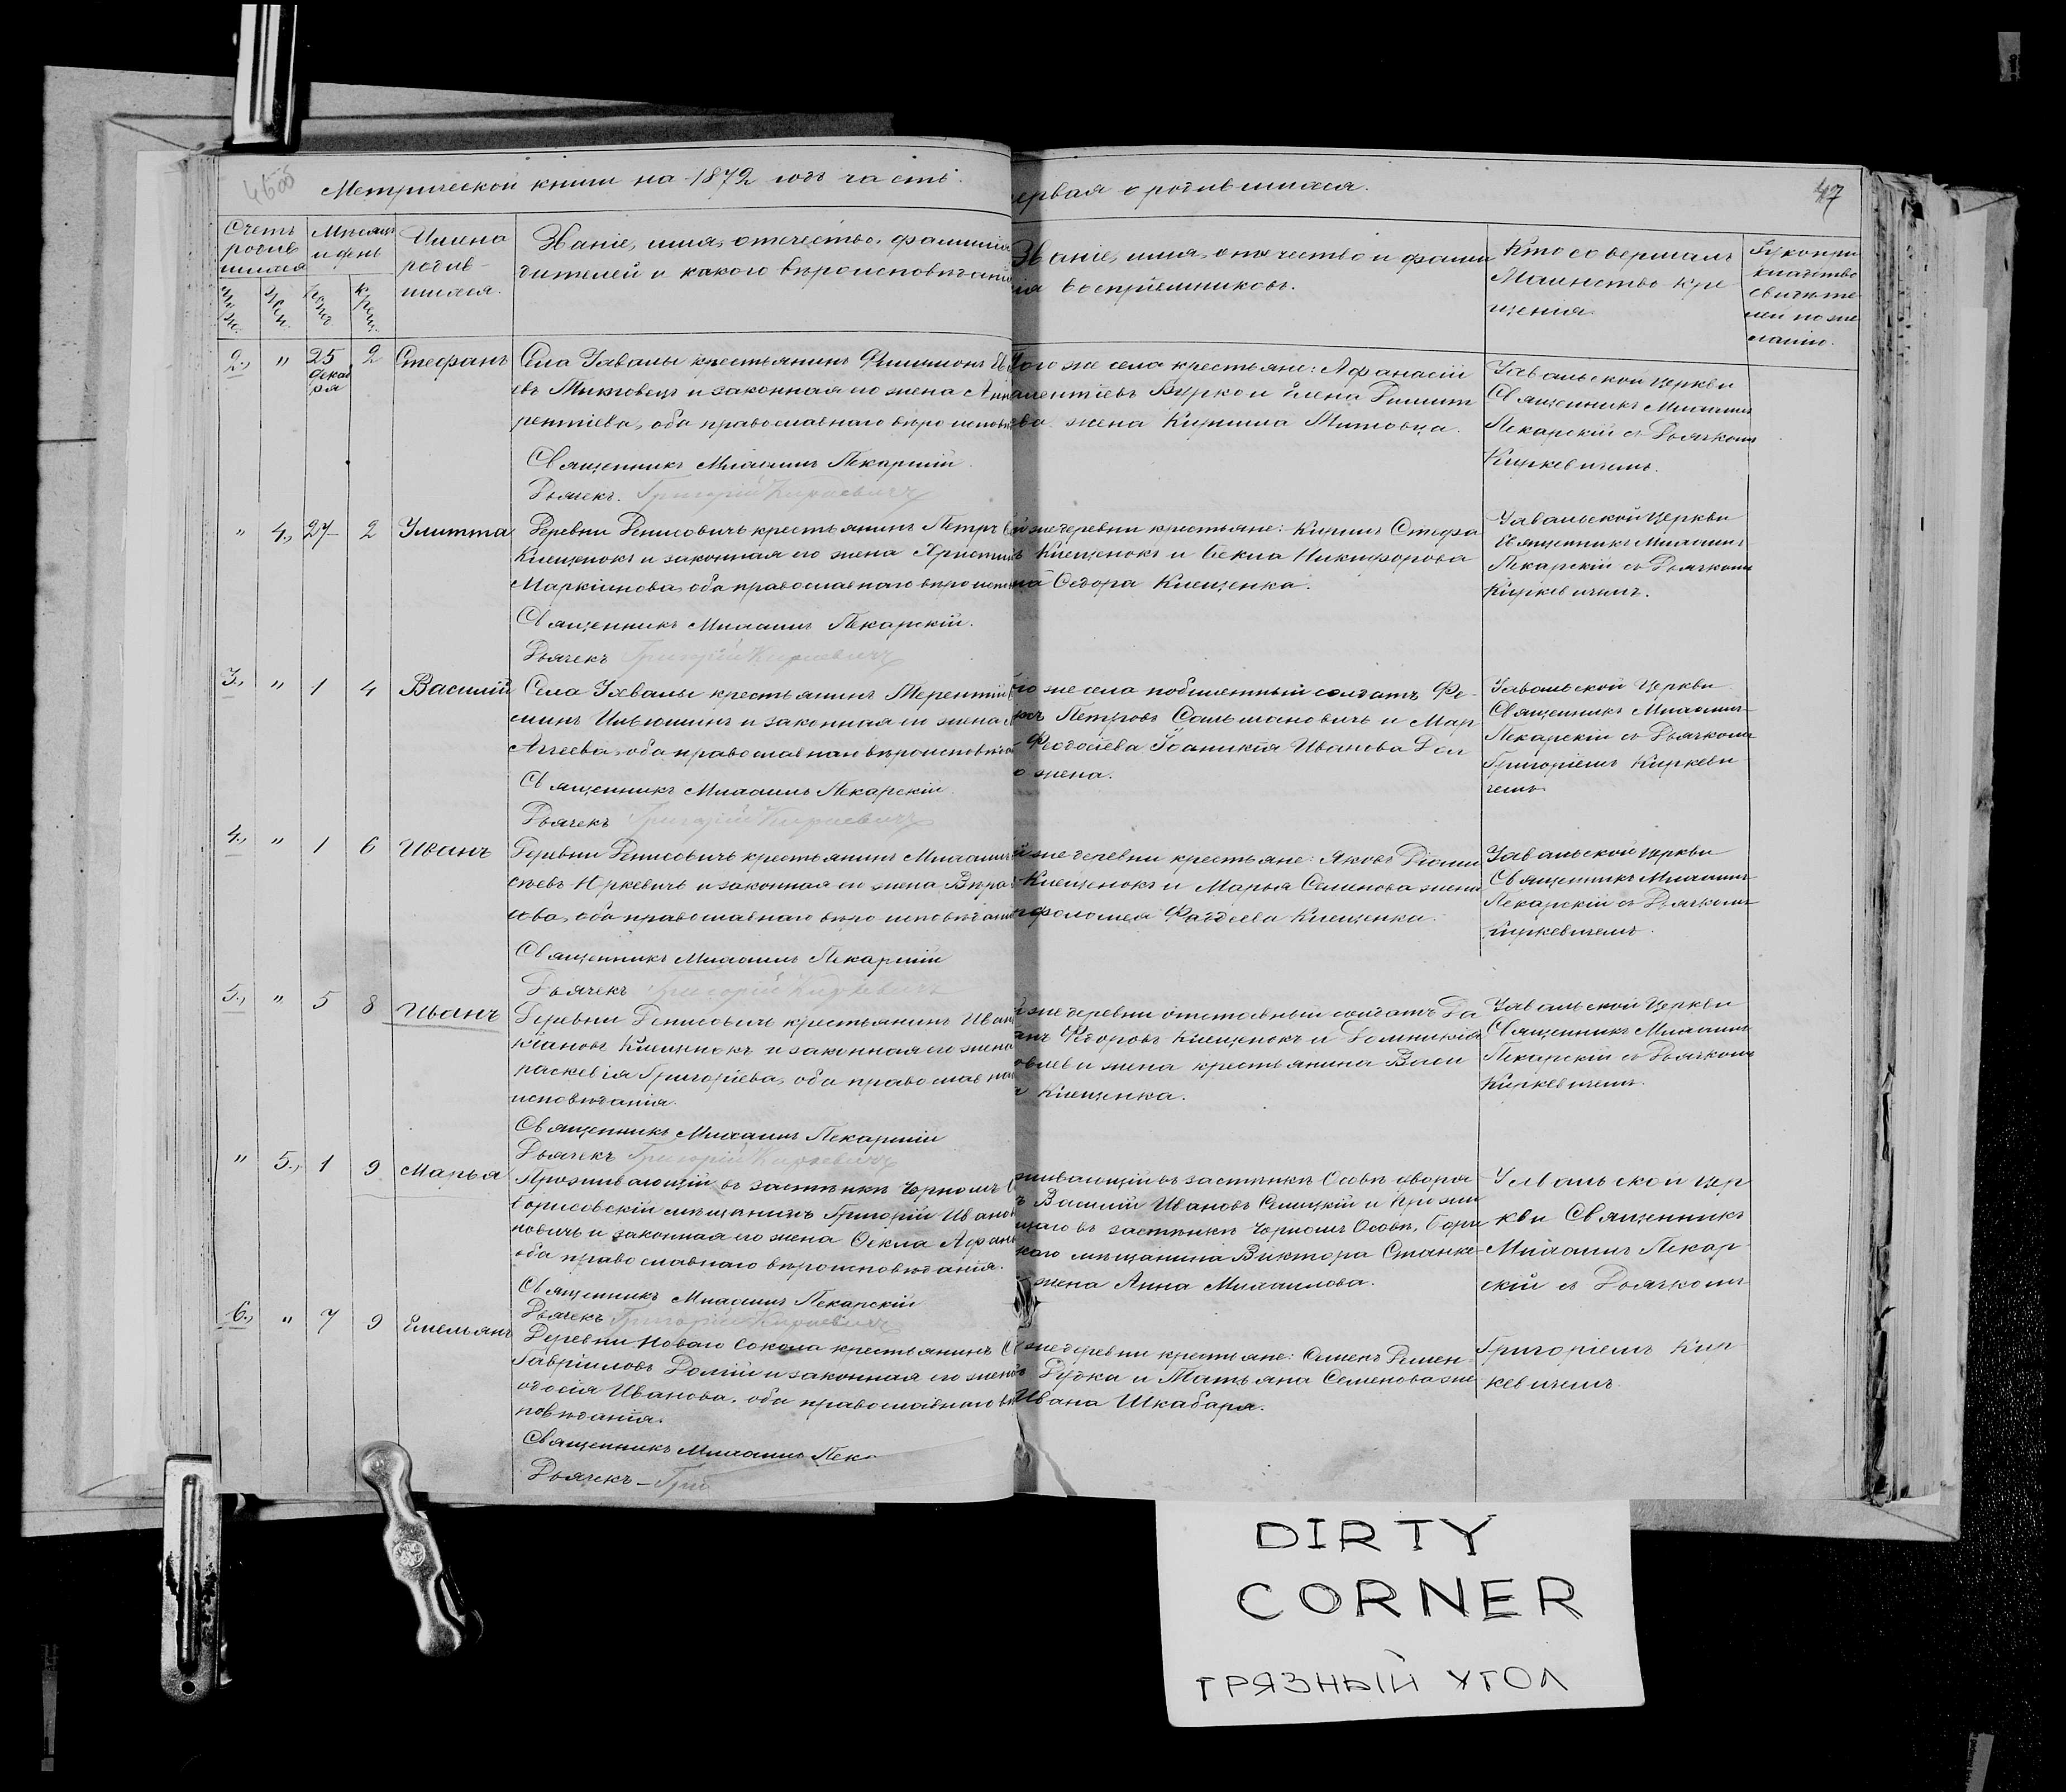 Метрической книги на 1872 годъ часть
первая о родившихся.
47
Счетъ родившихся
Мѣсяцъ и день
Имена родившихся.
Званіе, имя, отчество, фамилія
дителей и какого вѣроисповѣданія
Званіе, имя, отечество и фами
лія воспріемниковъ.
Кто совершалъ
Таинство кре
щенія
Рукопри
кладство
свидѣте
лей по же
ланію.
2., " 25 декабря 2 Стефанъ
Села Ухвалы крестьянинъ Филимонъ
и законная его жена
рентіева, оба православнаго вѣроисповѣ
Священникъ Михаилъ Пекарскій
Дьячекъ. Григорій Киркевичъ
того же села крестьяне: Афанасій
Бурко и Елена Димит
ва жена Кирилла Митовца.
Ухвальской Церкви
Священникъ Михаилъ
Пекарскій съ Дьячкомъ
Киркевичемъ.
" 4., 27 2 Улитта
Деревни Денисовичъ крестьянинъ Петръ
Клещенокъ и законная его жена Христина
Маркіянова, оба православнаго вѣроиспов
Священникъ Михаилъ Пекарскій.
Дьячекъ Григорій Киркевичъ
же деревни крестьяне: Кирилъ Стефа
Клещенокъ и Ѳекла Никифорова
на Ѳедора Клещенка.
Ухвальской Церкви
Священникъ Михаилъ
Пекарскій съ Дьячкомъ
Киркевичемъ.
3., " 1 4 Василій
Села Ухвалы крестьянинъ Терентій
Ильюшинъ и законная его жена
Агеева, оба православнаго вѣроисповѣда
Священникъ Михаилъ Пекарскій
Дьячекъ Григорій Киркевичъ
го же села побилетный солдатъ
Петровъ Сальмановичъ и Мар
Іоаникія Иванова
жена.
Ухвальской Церкви
Священникъ Михаилъ
Пекарскій съ Дьячкомъ
Григоріемъ Киркеви
чемъ
4., " 1 6 Иванъ
Деревни Денисовичъ крестьянинъ Михаилъ
Юркевичъ и законная его жена Вѣра
сова, оба православнаго вѣроисповѣданія
Священникъ Михаилъ Пекарскій
Дьячекъ Григорій Киркевичъ
же деревни крестьяне: Яковъ
Клещенокъ и Марья Семенова жена
фоломея Фаддеева Клещенка.
Ухвальской Церкви
Священникъ Михаилъ
Пекарскій съ Дьячкомъ
Киркевичемъ.
5., " 5 8 Иванъ
Деревни Денисовичъ крестьянинъ Иванъ
Клещенокъ и законная его жена
раскевія Григоріева, оба православна
исповѣданія.
Священникъ Михаилъ Пекарскій
Дьячекъ Григорій Киркевичъ
же деревни отставный солдатъ
Клещенокъ и Домникія
жена крестьянина Васи
Клещенка.
Ухвальской Церкви
Священникъ Михаилъ
Пекарскій съ Дьячкомъ
Киркевичемъ.
" 5., 1 9 Марья
Проживающій въ застѣнкѣ Черномъ
Борисовскій мѣщанинъ Григорій Иванов
новичъ и законная его жена Ѳекла Афан
оба православнаго вѣроисповѣданія.
Священникъ Михаилъ Пекарскій
Дьячекъ Григорій Киркевичъ
живающій въ застѣнкѣ Особѣ дворя
Василій Ивановъ и прожи
щаго въ застѣнкѣ Черномъ Особѣ, Бори
каго мѣщанина Виктора Станке
жена Анна Михаилова.
Ухвальской Цер
кви Священникъ
Михаилъ Пекар
скій съ Дьячкомъ
6., " 7 9 Емельянъ
Деревни Новаго Сокола крестьянинъ
Гавріиловъ и законная его жена
одосія Иванова, оба православнаго вѣ
повѣданія.
Священникъ Михаилъ Пек
Дьячекъ - Гри
же деревни крестьяне:
Рудка и Татьяна Семенова же
Ивана Шкабара.
Григоріемъ Кир
кевичемъ.
DIRTY
CORNER
ГРЯЗНЫЙ УГОЛ